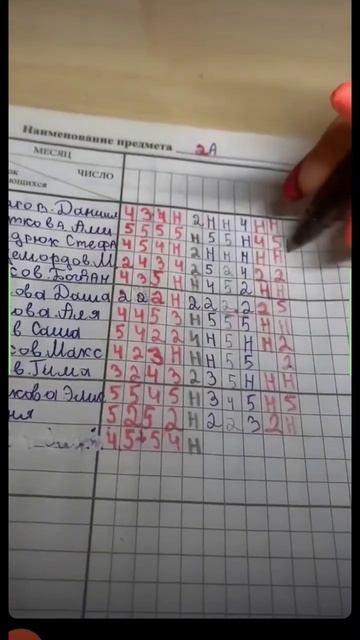 Наименование предмета 2А
МЕСЯЦ
ЧИСЛО
ов. Даниил 4 3 4 Н 2 Н Н 4 Н Н
тков А. Али 5 5 5 5 Н 5 5 Н 4 5
дрюк Стефа 4 5 4 Н 2 Н Н Н Н
емордов. М 2 4 3 4 2 5 2 4 2 2
сов. Богдан 4 3 5 Н Н 4 5 2 Н Н
ова Даша 2 2 2 Н 2 2 2 2 2 5
ова. Аля 4 4 5 3 Н 5 5 5 Н Н
в. Саша 5 4 2 2 4 Н 5 Н Н 2
ов. Макс 4 2 3 Н Н Н 5 5 2
в. Тима 3 2 4 3 2 3 5 Н Н Н
кова Эми 5 5 4 5 Н 3 4 5 Н 5
ия 5 2 5 2 Н 2 2 3 2 Н
4 5 5 4 Н